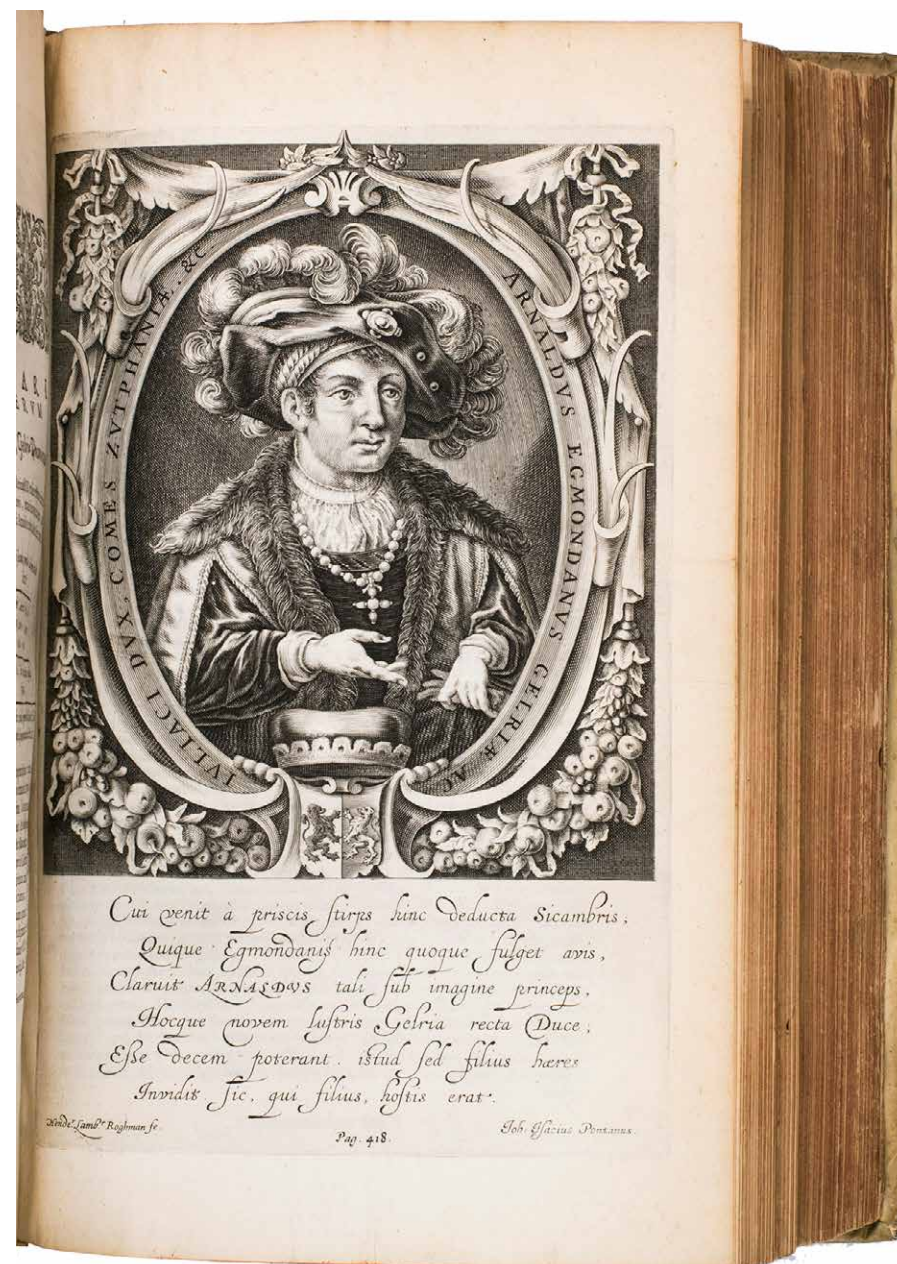 ARNALDVS EGMONDANVS GELRIÆ AC
IVLIACI DVX, COMES ZVTPHANIÆ. &C
Cui venit à priscis stirps hinc deducta Sicambris,
Quique Egmondanis hinc quoque fulget avis,
Claruit ARNALDVS tali sub imagine princeps,
Hocque novem lustris Gelria recta Duce;
Esse decem poterant. istud sed filius hæres
Invidit sic, qui filius, hostis erat.
Hende. Lambr. Roghman fe.
Pag. 418.
Joh. Isacius Pontanus.